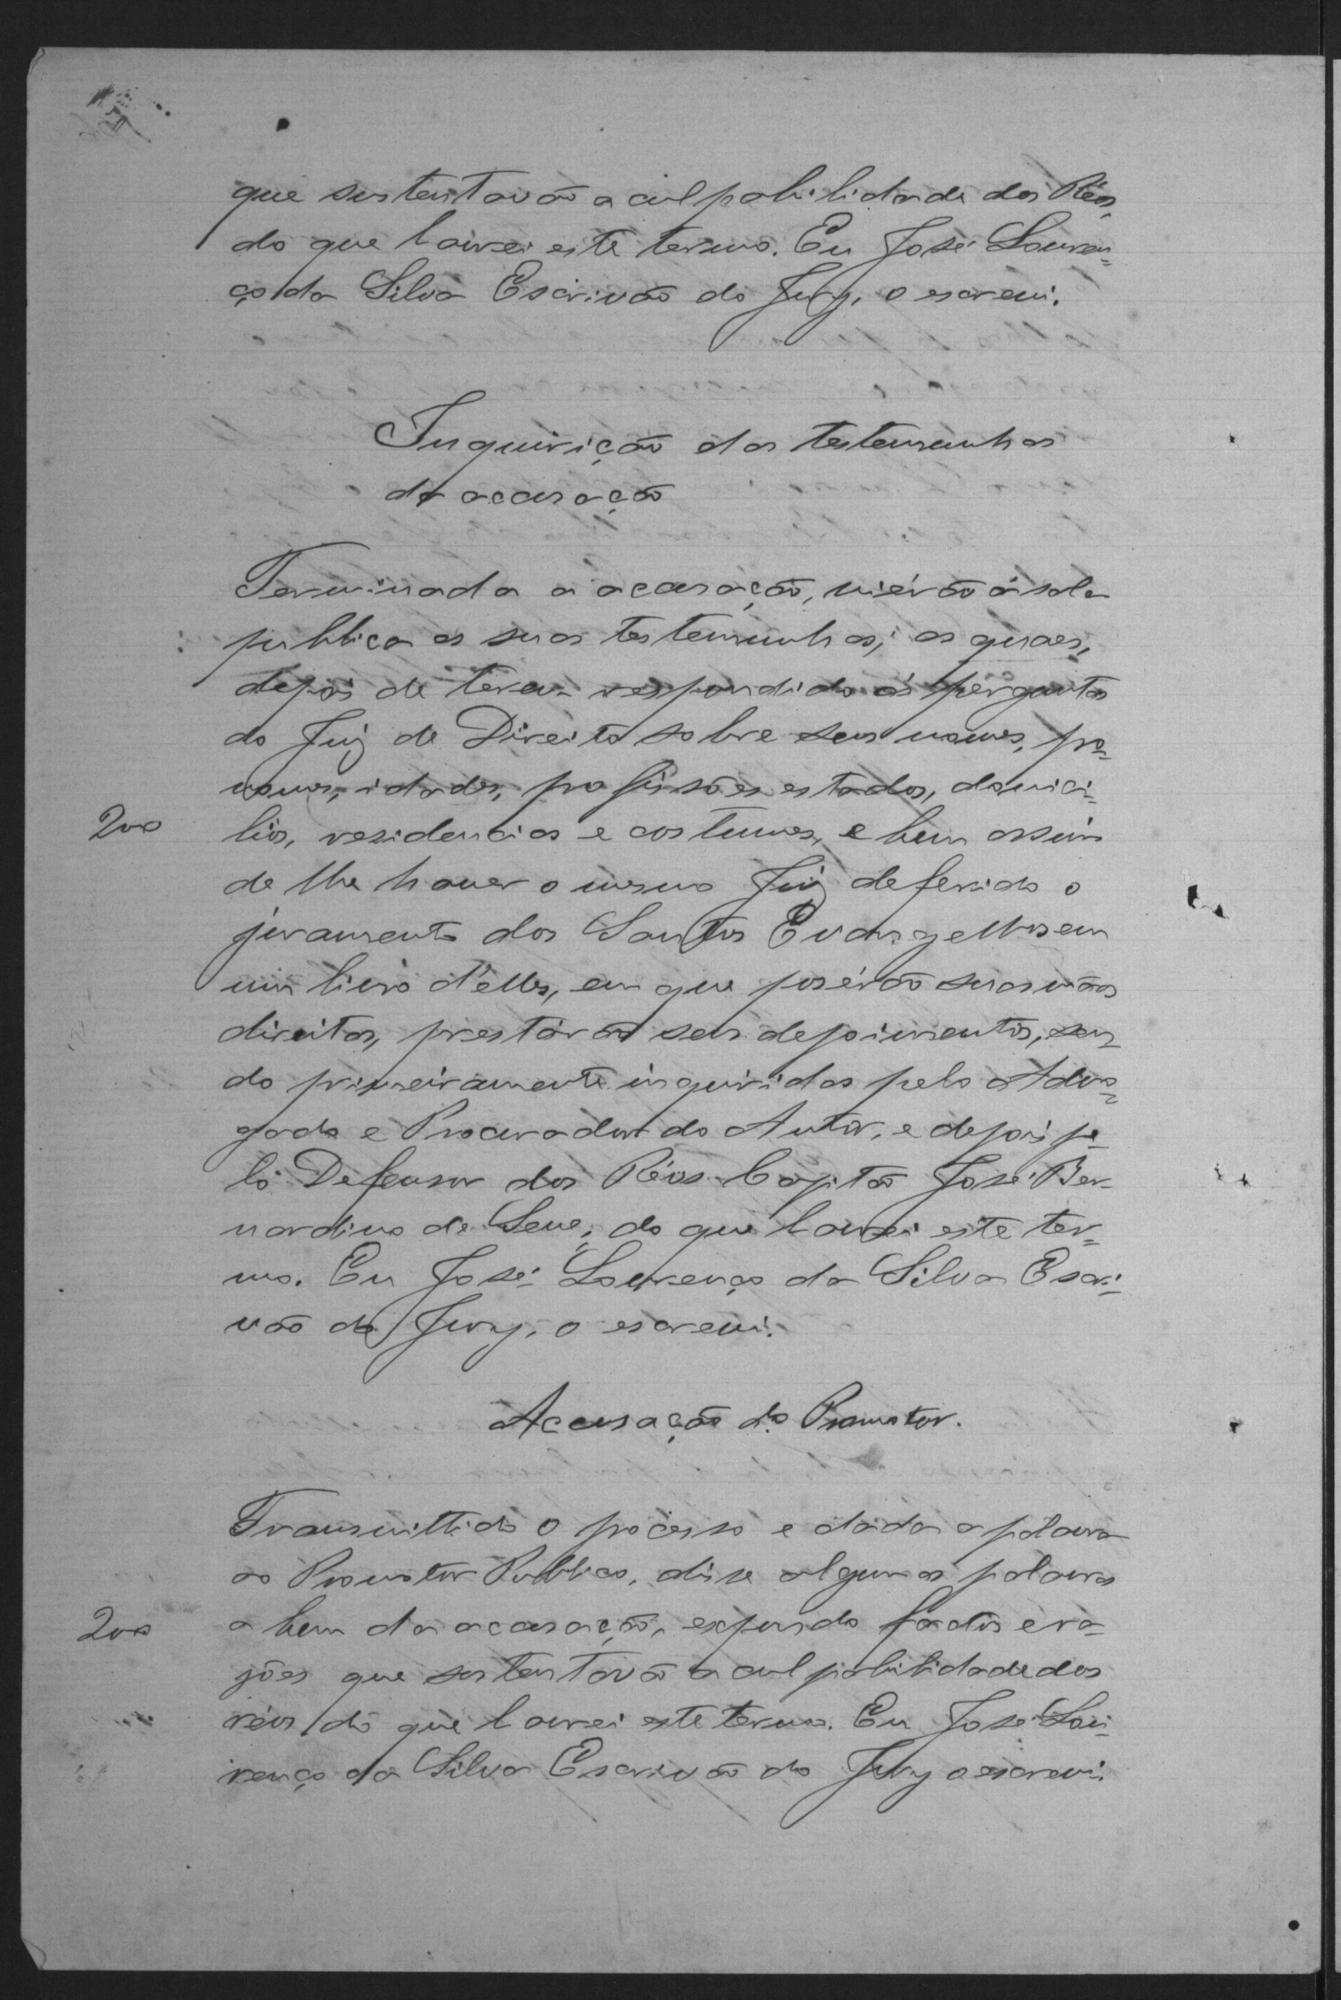 que sustentavão a culpabilidade dos Réos,
do que lavrei este termo. Eu José Louren=
ço da Silva Escrivão do Jury, o escrevi.
Inquirição das testemunhas
da accusação
Terminada a accusação, viérão á sala
publica as suas testemunhas; as quaes,
depois de terem respondido ás perguntas
do Juiz de Direito sobre seus nomes, pro=
nomes, idades, profissões estados, domici=
200
lios, residencias e costumes, e bem assim
de lhe haver o mesmo Juiz deferido o
juramento dos Santos Evangelhos em
um livro d'elles, em que posérão suas mãos
direitas, prestárão seus depoimentos, sen
do primeiramente inquiridas pelo Advo=
gado e Procurador do Autor, e depois pe=
lo Defensor dos Réos Capitão José Ber=
nardino de Sene; do que lavrei este ter=
mo. Eu José Lourenço da Silva Escri=
vão do Jury, o escrevi.
Accusação do Promotor.
Transmittido o processo e dada a palavra
ao Promotor Publico, disse algumas palavras
200
a bem da accusação, expondo factos e ra=
zões que sustentavão a culpabilidade dos
réos do que lavrei este termo. Eu José Lou=
renço da Silva Escrivão do Jury o escrevi.